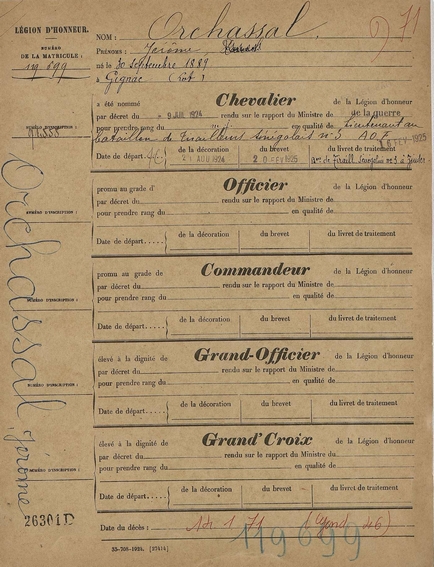 LÉGION D'HONNEUR.
NUMÉRO
DE LA MATRICULE:
119.699
NOM: Orchassal.
PRÉNOMS: Jérôme,
né le 30 Septembre 1889
à Gignac (Lot)
71
a été nommé Chevalier de la Légion d'honneur
par décret du 9 JUIL 1924 rendu sur le rapport du Ministre de la guerre
pour prendre rang en qualité de Lieutenant au
NUMÉRO D'INSCRIPTION:
bataillon de Tirailleurs Sénégalais n° 3 A.O.F.
Date de départ de la décoration du brevet du livret de traitement
21 AOU 1924 20 FEV 1925 FEV 1925
promu au grade de Officier de la Légion d'honneur
par décret du rendu sur le rapport du Ministre de
pour prendre rang en qualité de
NUMÉRO D'INSCRIPTION:
Date de départ..... de la décoration du brevet du livret de traitement
promu au grade de Commandeur de la Légion d'honneur
par décret du rendu sur le rapport du Ministre de
pour prendre rang en qualité de
NUMÉRO D'INSCRIPTION:
Date de départ..... de la décoration du brevet du livret de traitement
élevé à la dignité de Grand-Officier de la Légion d'honneur
par décret du rendu sur le rapport du Ministre de
pour prendre rang en qualité de
NUMÉRO D'INSCRIPTION:
Date de départ..... de la décoration du brevet du livret de traitement
élevé à la dignité de Grand'Croix de la Légion d'honneur
par décret du rendu sur le rapport du Ministre de
pour prendre rang en qualité de
NUMÉRO D'INSCRIPTION:
Date de départ..... de la décoration du brevet du livret de traitement
Orchassal, Jérôme
26301D
Date du décès: 1 71
119699